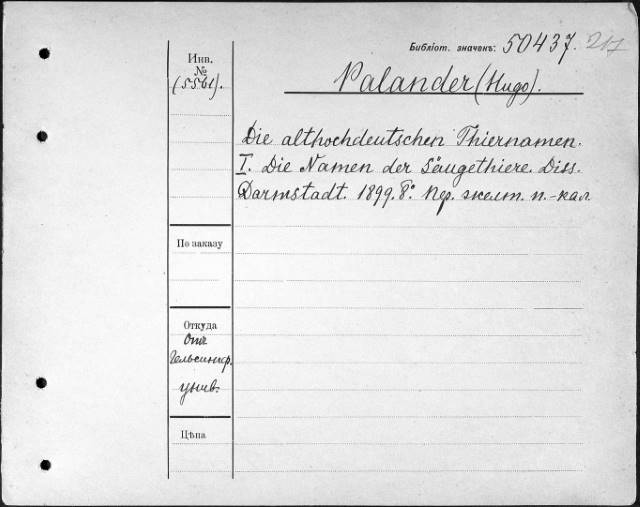 Библіот. значекъ: 50437. 217
Инв.
№
(5561).
Palander (Hugo).
Die althochdeutschen Thiernamen.
I. Die Namen der Säugethiere. Diss.
Darmstadt. 1899. 8°. Пер. желт. п.-кал
По заказу
Откуда
Отъ
Гельсингф.
унив.
Цѣна